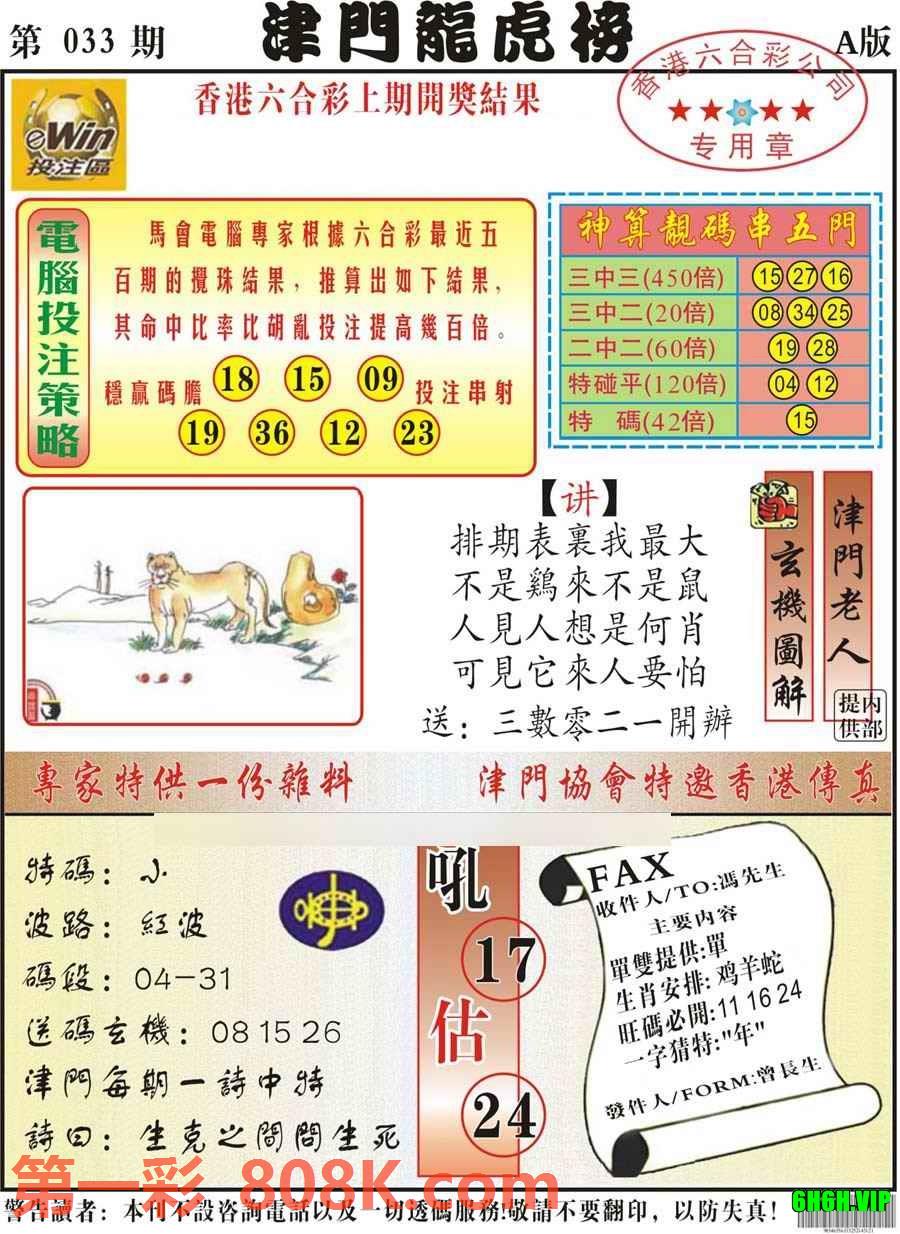 第 033 期
津門龍虎榜
A版
eWin
投注區
香港六合彩上期開獎結果
香港六合彩公司
★★★★
专用章
電腦投注策略
馬會電腦專家根據六合彩最近五
百期的攪珠結果，推算出如下結果，
其命中比率比胡亂投注提高幾百倍。
穩贏碼膽 18 15 09 投注串射
19 36 12 23
神算靚碼串五門
三中三(450倍) 15 27 16
三中二(20倍) 08 34 25
二中二(60倍) 19 28
特碰平(120倍) 04 12
特 碼(42倍) 15
【讲】
排期表裏我最大
不是鷄來不是鼠
人見人想是何肖
可見它來人要怕
送：三數零二一開辦
玄機圖解
津門老人
内部提供
專家特供一份雜料
津門協會特邀香港傳真
特碼：小
波路：紅波
碼段：04-31
送碼玄機：08 15 26
津門每期一詩中特
詩曰：生克之間問生死
吼
17
估
24
FAX
收件人/TO:馮先生
主要内容
單雙提供:單
生肖安排:鸡羊蛇
旺碼必開:11 16 24
一字猜特:"年"
發件人/FORM:曾長生
第一彩 808K.com
警告讀者：本刊不設咨詢電話以及一切透碼服務!敬請不要翻印，以防失真！
6H6H.VIP